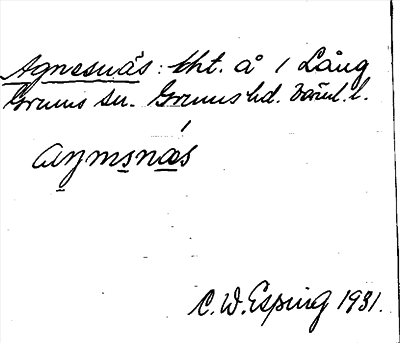 Agnesnäs: tht. å 1 Lång
Grums sn. Grums hd. Värml. l.
aŋmsnäs
C. W. Esping 1931.